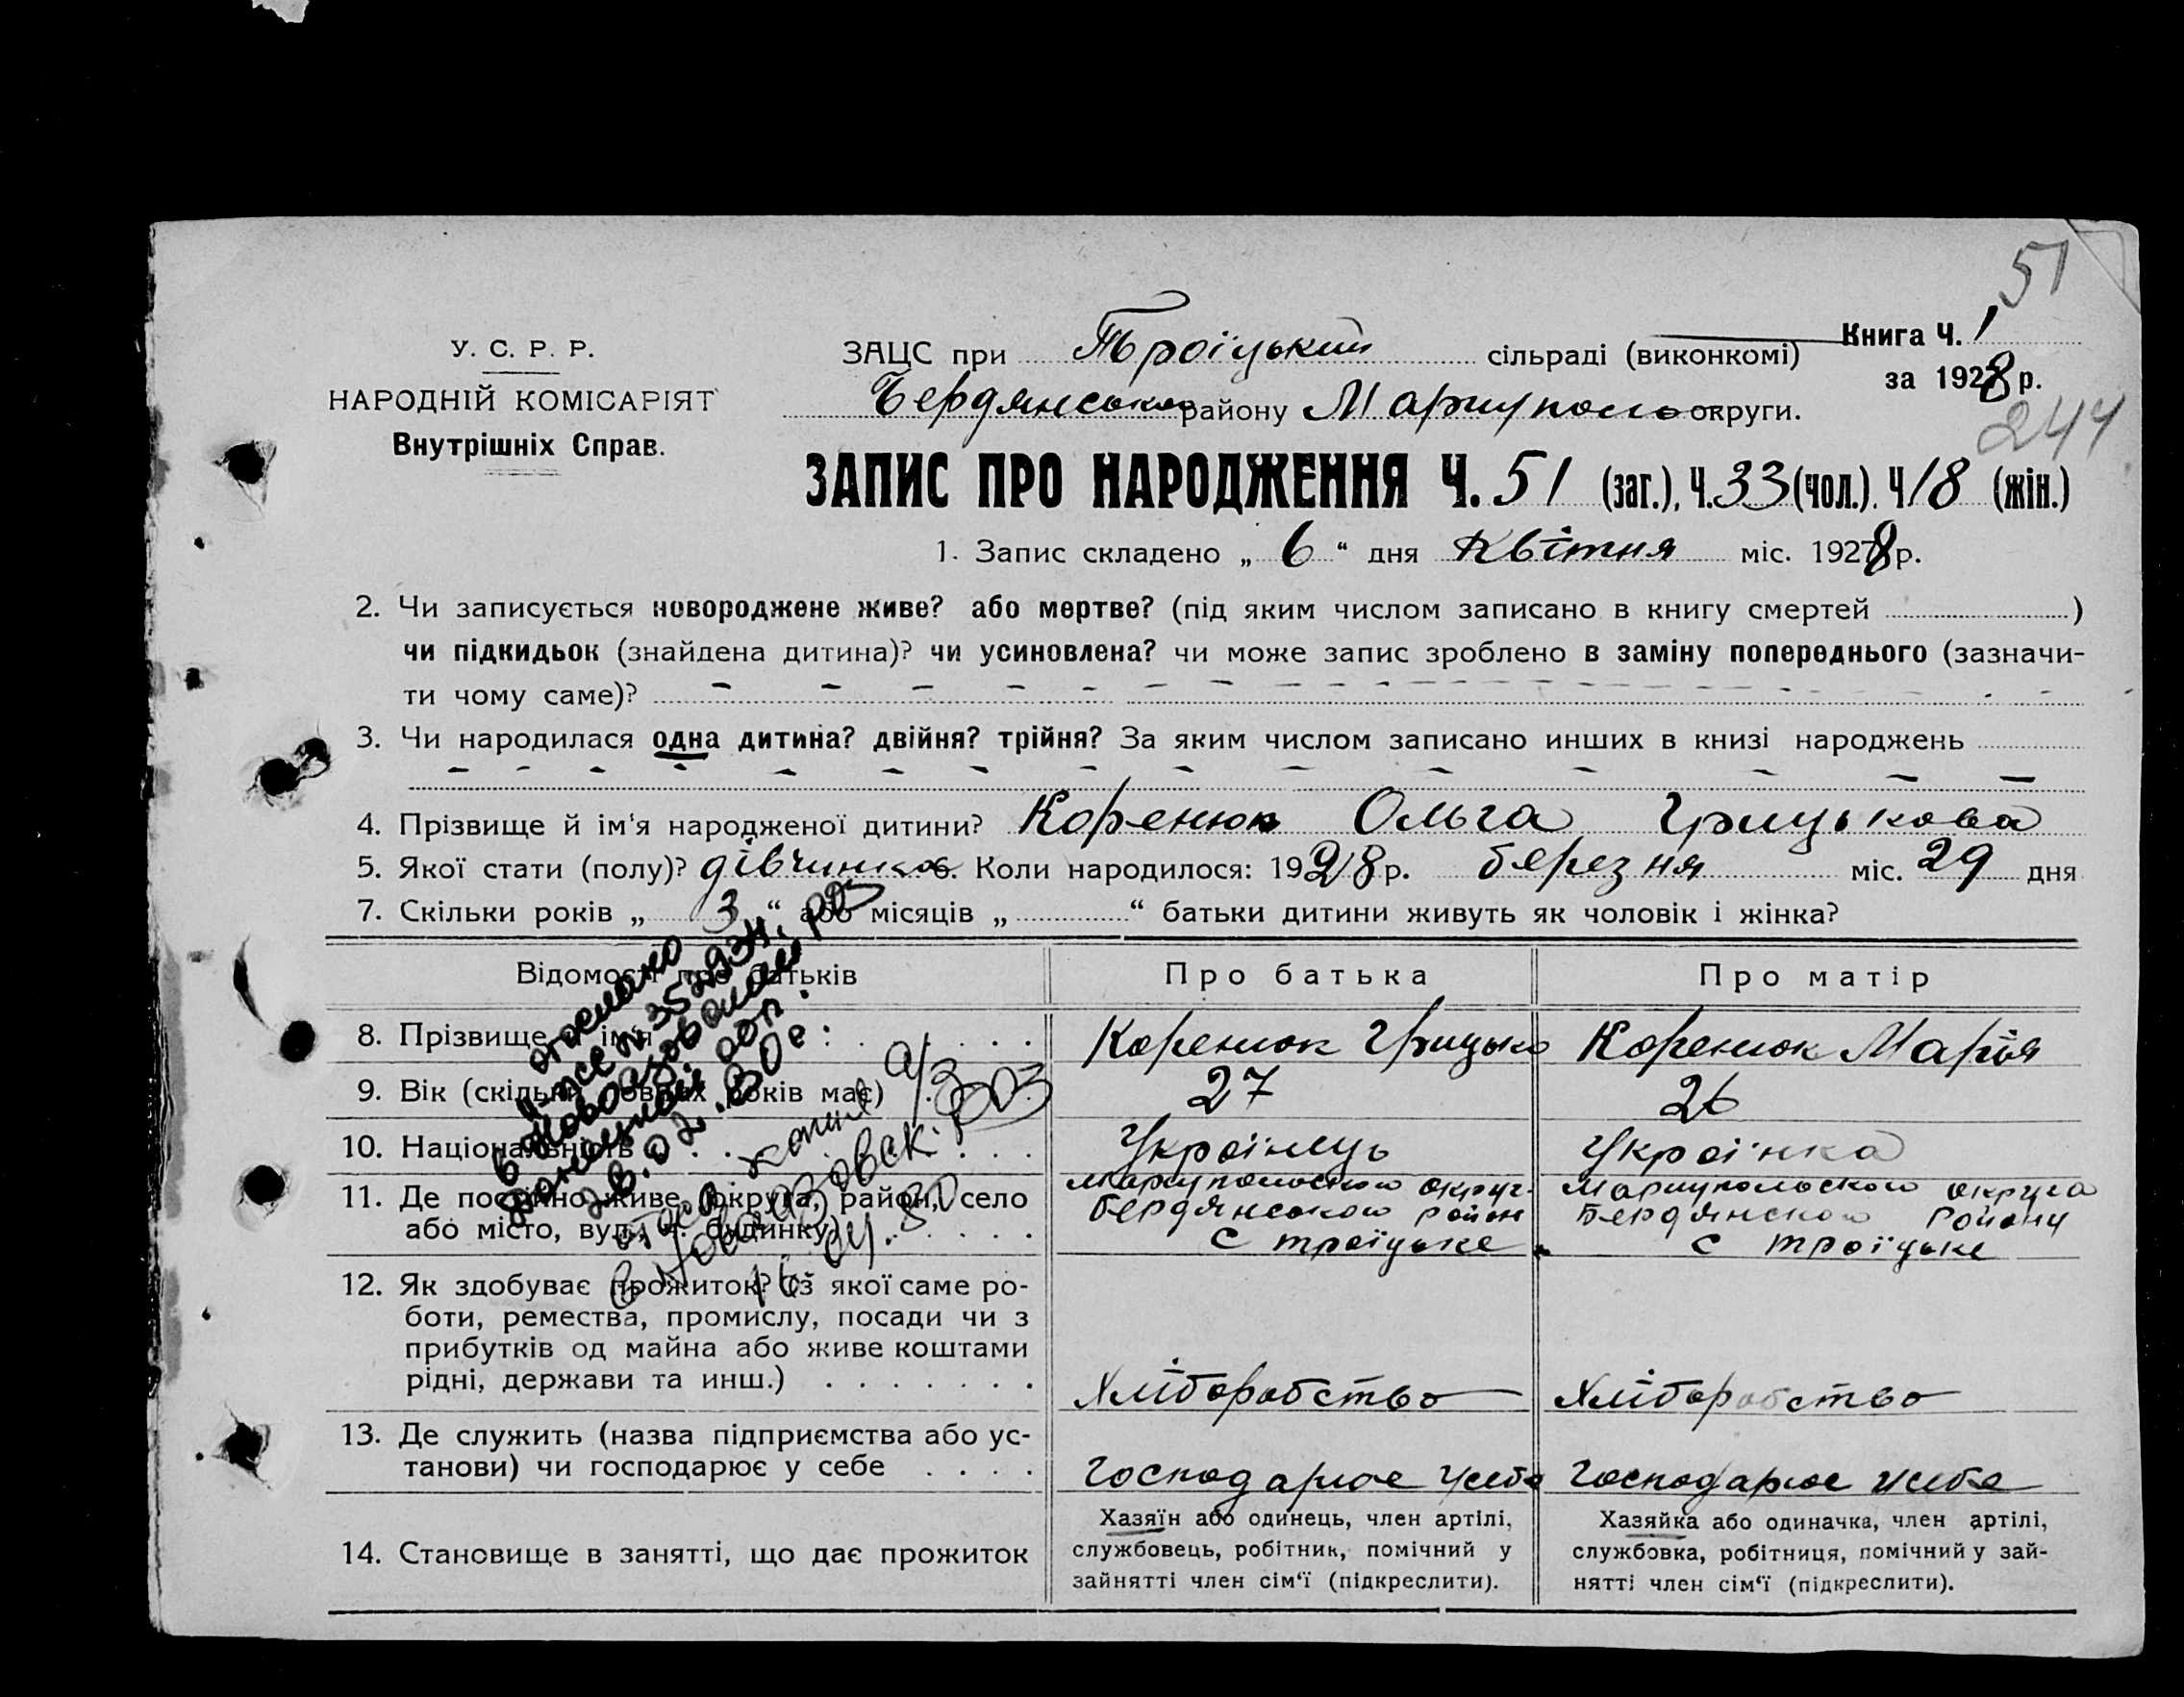 51
У. С. Р. Р.
НАРОДНІЙ КОМІСАРІЯТ
Внутрішніх Справ.
ЗАЦС при Троїцький сільраді (виконкомі) Книга Ч. 1
за 1928 р.
Бердянсько району Маріуполь округи.
244
ЗАПИС ПРО НАРОДЖЕННЯ Ч. 51 (заг.), Ч. 33 (чол.). Ч 18 (жін.)
1. Запис складено „ 6 “ дня Квітня міс. 1928 р.
2. Чи записується новороджене живе? або мертве? (під яким числом записано в книгу смертей )
чи підкидьок (знайдена дитина)? чи усиновлена? чи може запис зроблено в заміну попереднього (зазначи-
ти чому саме)?
3. Чи народилася одна дитина? двійня? трійня? За яким числом записано инших в книзі народжень
4. Прізвище й ім'я народженої дитини? Коренюк Ольга Грицькова
5. Якої стати (полу)? дівчинка 6. Коли народилося: 1928 р. березня міс. 29 дня
7. Скільки років „ 3 “ або місяців „ “ батьки дитини живуть як чоловік і жінка?
Відомості про батьків Про батька Про матір
8. Прізвище й ім'я Коренюк Грицько Коренюк Марія
9. Вік (скільки повних років має) 27 26
10. Національність Українець Українка
11. Де постійно живе (округа, район, село
або місто, вул., ч. будинку)
Маріупольского округ.
Бердянського район
с троїцьке
Маріупольского округа
Бердянского району
с троїцьке
12. Як здобуває прожиток? (з якої саме ро-
боти, ремества, промислу, посади чи з
прибутків од майна або живе коштами
рідні, держави та инш.) Хліборобство Хліборобство
13. Де служить (назва підприємства або ус-
танови) чи господарює у себе Господарює у себе Господарює у себе
14. Становище в занятті, що дає прожиток
Хазяїн або одинець, член артілі,
службовець, робітник, помічний у
зайнятті член сім'ї (підкреслити).
Хазяйка або одиначка, член артілі,
службовка, робітниця, помічний у зай-
нятті член сім'ї (підкреслити).